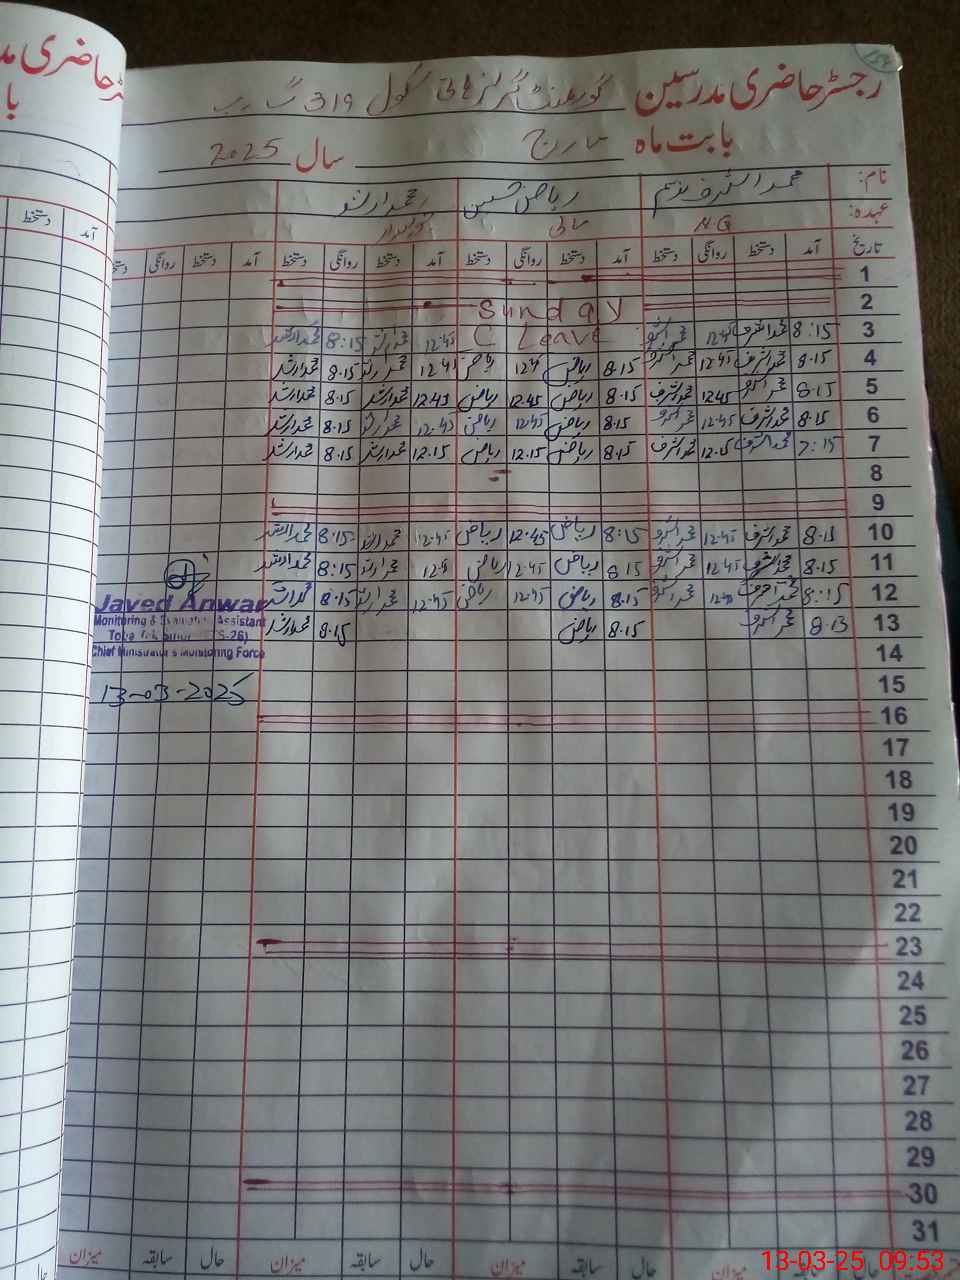 رجسٹر حاضری مدرسین گورنمنٹ گرلز ہائی سکول 319 گ ب
بابت ماہ مارچ سال 2025
نام: محمد اشرف ریاض حسین محمد ارشد
عہدہ: N.Q مالی چوکیدار
تاریخ آمد دستخط روانگی دستخط آمد دستخط روانگی دستخط آمد دستخط روانگی دستخط آمد دستخط روانگی دستخط
1
2 Sunday
3 8:15 محمد اشرف 12.45 محمد اشرف C Leave 12.45 محمد ارشد 8:15 محمد ارشد
4 8.15 محمد اشرف 12.45 محمد اشرف 8.15 ریاض ریاض محمد ارشد 8.15 محمد ارشد
5 8.15 محمد اشرف 12.45 محمد اشرف 8.15 ریاض 12.45 ریاض 12.45 محمد ارشد 8.15 محمد ارشد
6 8.15 محمد اشرف 12.45 محمد اشرف 8.15 ریاض 12.45 ریاض 12.45 محمد ارشد 8.15 محمد ارشد
7 7:15 محمد اشرف 12.15 محمد اشرف 8.15 ریاض 12.15 ریاض 12.15 محمد ارشد 8.15 محمد ارشد
8
9
10 8.13 محمد اشرف 12.45 محمد اشرف 8:15 ریاض 12.45 ریاض 12.45 محمد ارشد 8:15 محمد ارشد
11 8.15 محمد اشرف 12.45 محمد اشرف 8.15 ریاض 12.45 ریاض محمد ارشد 8:15 محمد ارشد
12 8:15 محمد اشرف محمد اشرف 8.15 ریاض 12.45 ریاض 12.45 محمد ارشد 8.15 محمد ارشد
13 8.13 محمد اشرف 8.15 ریاض 8.15 محمد ارشد
Javed Anwar
Monitoring & Evaluation Assistant
Chief Minister's Monitoring Force
13-03-2025
14
15
16
17
18
19
20
21
22
23
24
25
26
27
28
29
30
31
حال سابقہ میزان حال سابقہ میزان حال سابقہ میزان
13-03-25 09:53
رجسٹر حاضری
با
آمد دستخط
حال